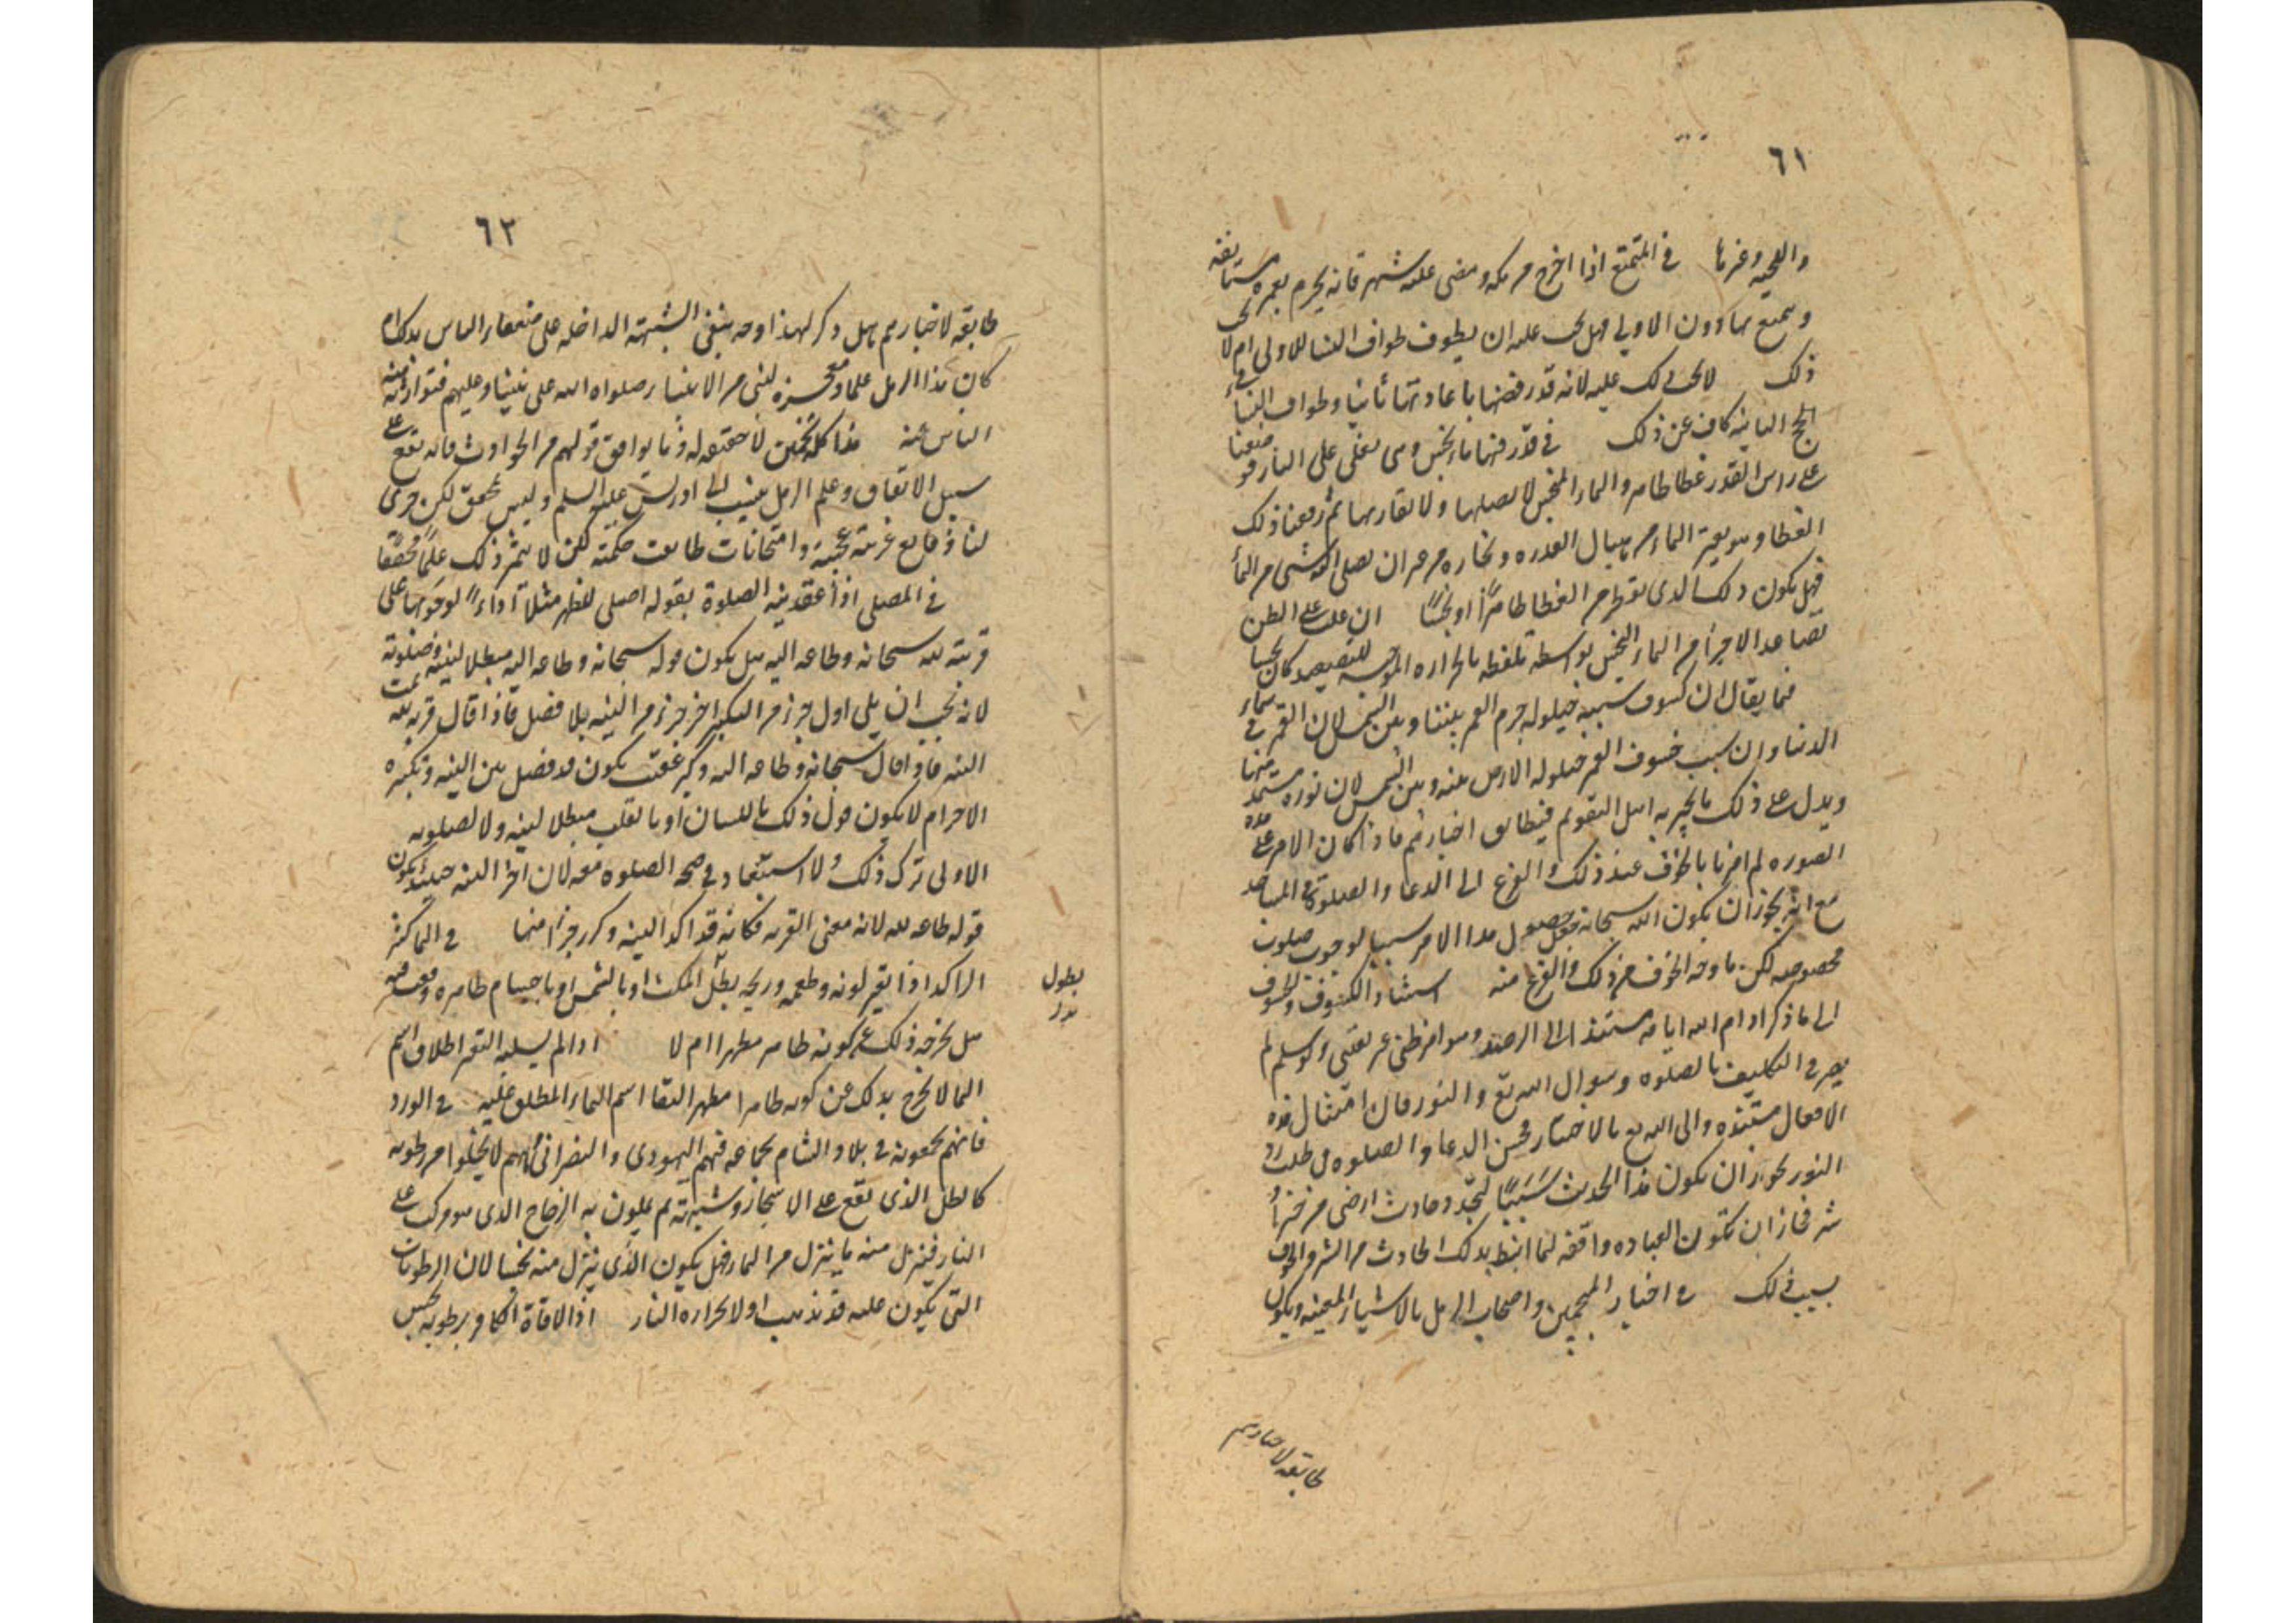 ٦١
واللحيه وغيرها في المتمتع اذا اخرج من مكه ومضى عليه شهر فانه يحرم بعمره مستانفه
ويتمتع بها دون الاولى فهل يجب عليه ان يطوف طواف النسا للاولى ام لا يجب
ذلك لا يجب ذلك عليه لانه قد رفضها باعادتها ثانيا وطواف النساء في
الحج الثانيه كاف عن ذلك في قدر فيها ماء نجس وهي تغلى على النار فوضعنا
على راس القدر غطا طاهر والماء النجس لا يصلها ولا يقاربها ثم رفعنا ذلك
الغطا وهو يقطر الماء من بال القدره وبخاره من غير ان يصل اليه شي من الماء
فهل يكون ذلك الذي يقطر من الغطا طاهرًا او نجسًا ان غلب على الظن
تصاعد الاجزاء من الماء النجس بواسطه تلطفه بالحراره الموجبه للتصعيد كان نجسا
فما يقال ان كسوف سببه حيلوله جرم القمر بيننا وبين الشمس لان القمر في سماء
الدنيا وان سبب خسوف القمر حيلوله الارض بينه وبين الشمس لان نوره مستمد منها
ويدل على ذلك ما يخبر به اهل التقويم فيطابق اخبارهم فاذا كان الامر على هذه
الصوره لم امرنا بالخوف عند ذلك والفزع الى الدعا والصلوة في المساجد
مع انه يجوز ان يكون الله سبحانه جعل حصول هذا الامر سببا لوجوب صلوات
مخصوصه لكن ما وجه الخوف من ذلك والفزع منه استناد الكسوف والخسوف
الى ما ذكر ادام الله ايامه مستند الى الرصد وهو امر ظني غير يقيني ولو سلم لم
يضر في التكليف بالصلوه وسوال الله تع والنور فان امتثال هذه
الافعال مستنده الى الله تع بالاختيار فحسن الدعا والصلوه في طلب رد
النور يجوز ان يكون هذا الحدث سَبَبًا لتجدد حادث ارضي من خير او
شر فجاز ان تكون العباده واقعه لما انبط بذلك الحادث من الشر والخوف
بسبب ذلك في اخبار المنجمين واصحاب الرمل بالاشياء المعينه ويكون
طابقه لاخبارهم
٦٢
طابقه لاخبارهم هل ذكر لهذا وجه ينفى الشبهة الداخله على ضعفاء الناس بذلك ام
كان هذا الرمل علما ومعجزه لنبي من الانبياء صلواه الله على نبينا وعليهم فتوارثته
الناس عنه هذا كله تخمين لا حقيقه له وما يوافق قولهم من الحوادث فانه يقع على
سبيل الاتفاق وعلم الرمل ينسب الى ادريس عليه السلم وليس بمحقق لكن جرى
لنا وقايع غريبة عجيبة وامتحانات طابقت حكمته لكن لا يثمر ذلك علمًا محققًا
في المصلى اذا عقد نية الصلوة بقوله اصلى الظهر مثلا اداءً لوجوبها على
قربة لله سبحانه وطاعه اليه هل يكون قوله سبحانه وطاعه اليه مبطلا لنيته وصلوته
لانه يجب ان يلى اول جزء من التكبير اخر جزء من النيه بلا فصل فاذا قال قربه لله تمت
النيه فاذا قال سبحانه وطاعه اليه وكبر عقيب يكون قد فصل بين النيه وتكبيره
الاحرام لا يكون قول ذلك باللسان او بالقلب مبطلا لنيته ولا لصلوته
الاولى ترك ذلك ولا استبعاد في صحه الصلوه معه لان اخر النيه حينئذ يكون
قوله طاعه لله لانه معنى القربه فكانه قد اكد النيه وكرر جزءا منها في الماء الكثير
الراكد اذا تغير لونه وطعمه وريحه بطول المكث او بالشمس او باجسام طاهره وقعت فيه
هل يخرجه ذلك عن كونه طاهر مطهرا ام لا اذا لم يسلبه التغير اطلاق اسم
الماء لا يخرج بذلك عن كونه طاهرا مطهرا لبقا اسم الماء المطلق عليه في الورد
فانهم يجمعونه في بلاد الشام بجماعه فيهم اليهودي والنصراني وهم لا يخلوا من رطوبه
كالطل الذي يقع على الاشجار وشبهته ثم يملون به الزجاج الذي هو مركب على
النار فينزل منه ما ينزل من الماء فهل يكون الذي ينزل منه نجسا لان الرطوبات
التي يكون عليه قد تذهب اولا بحراره النار اذا لاقاه الكافر برطوبه نجس
بطول
بدل